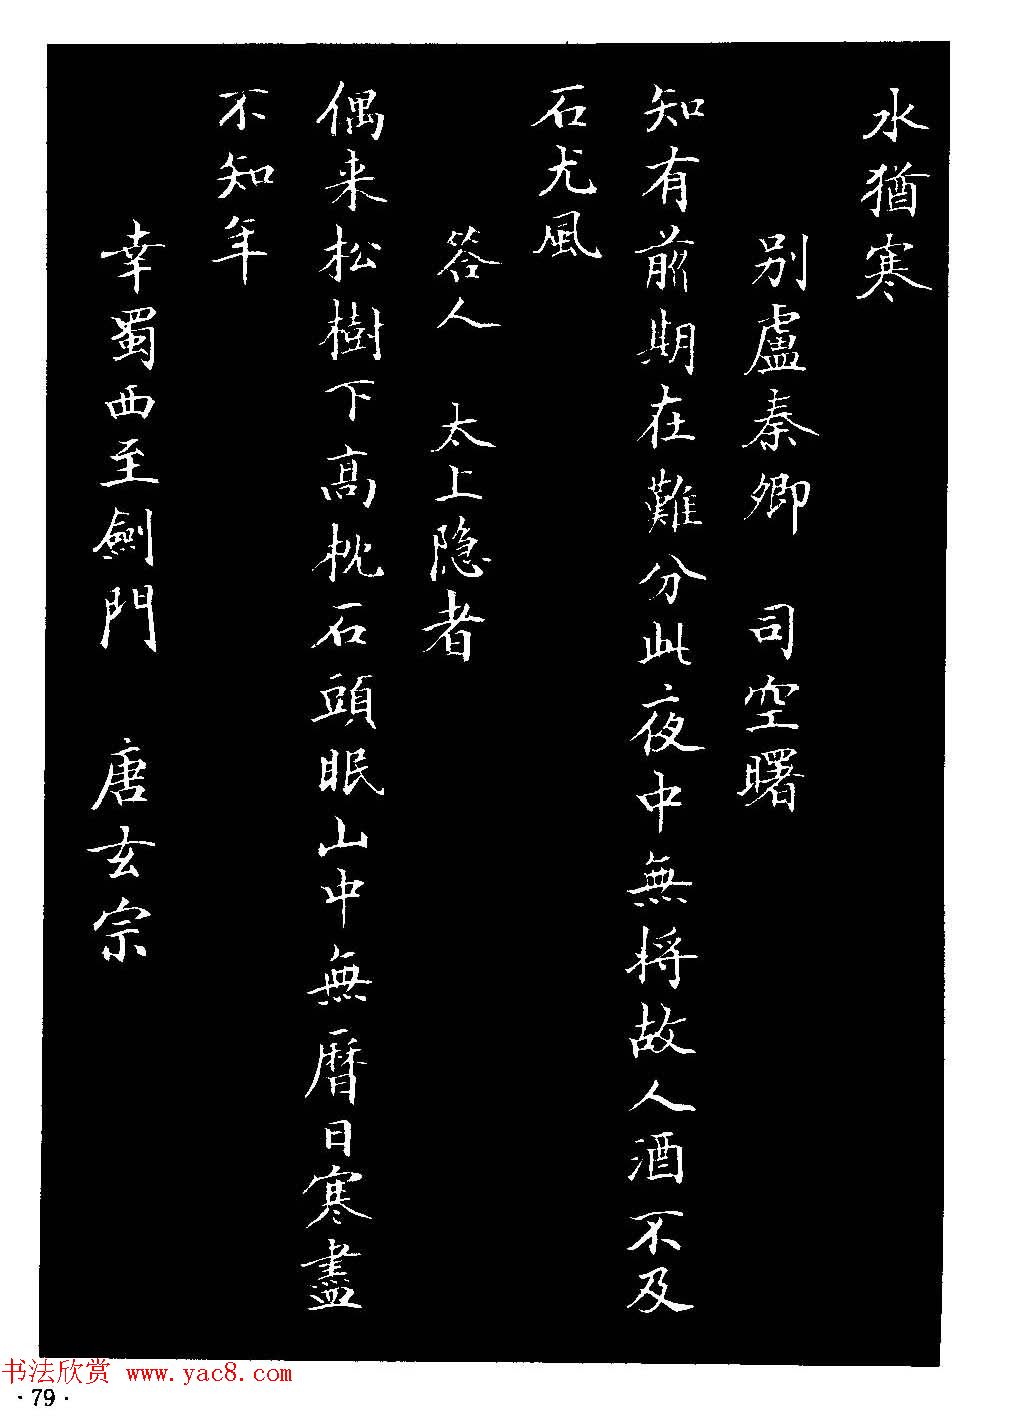 水猶寒
别盧秦卿 司空曙
知有前期在難分此夜中無将故人酒不及
石尤風
答人 太上隐者
偶来松樹下高枕石頭眠山中無曆日寒盡
不知年
幸蜀西至劍門 唐玄宗
书法欣赏 www.yac8.com
·79·